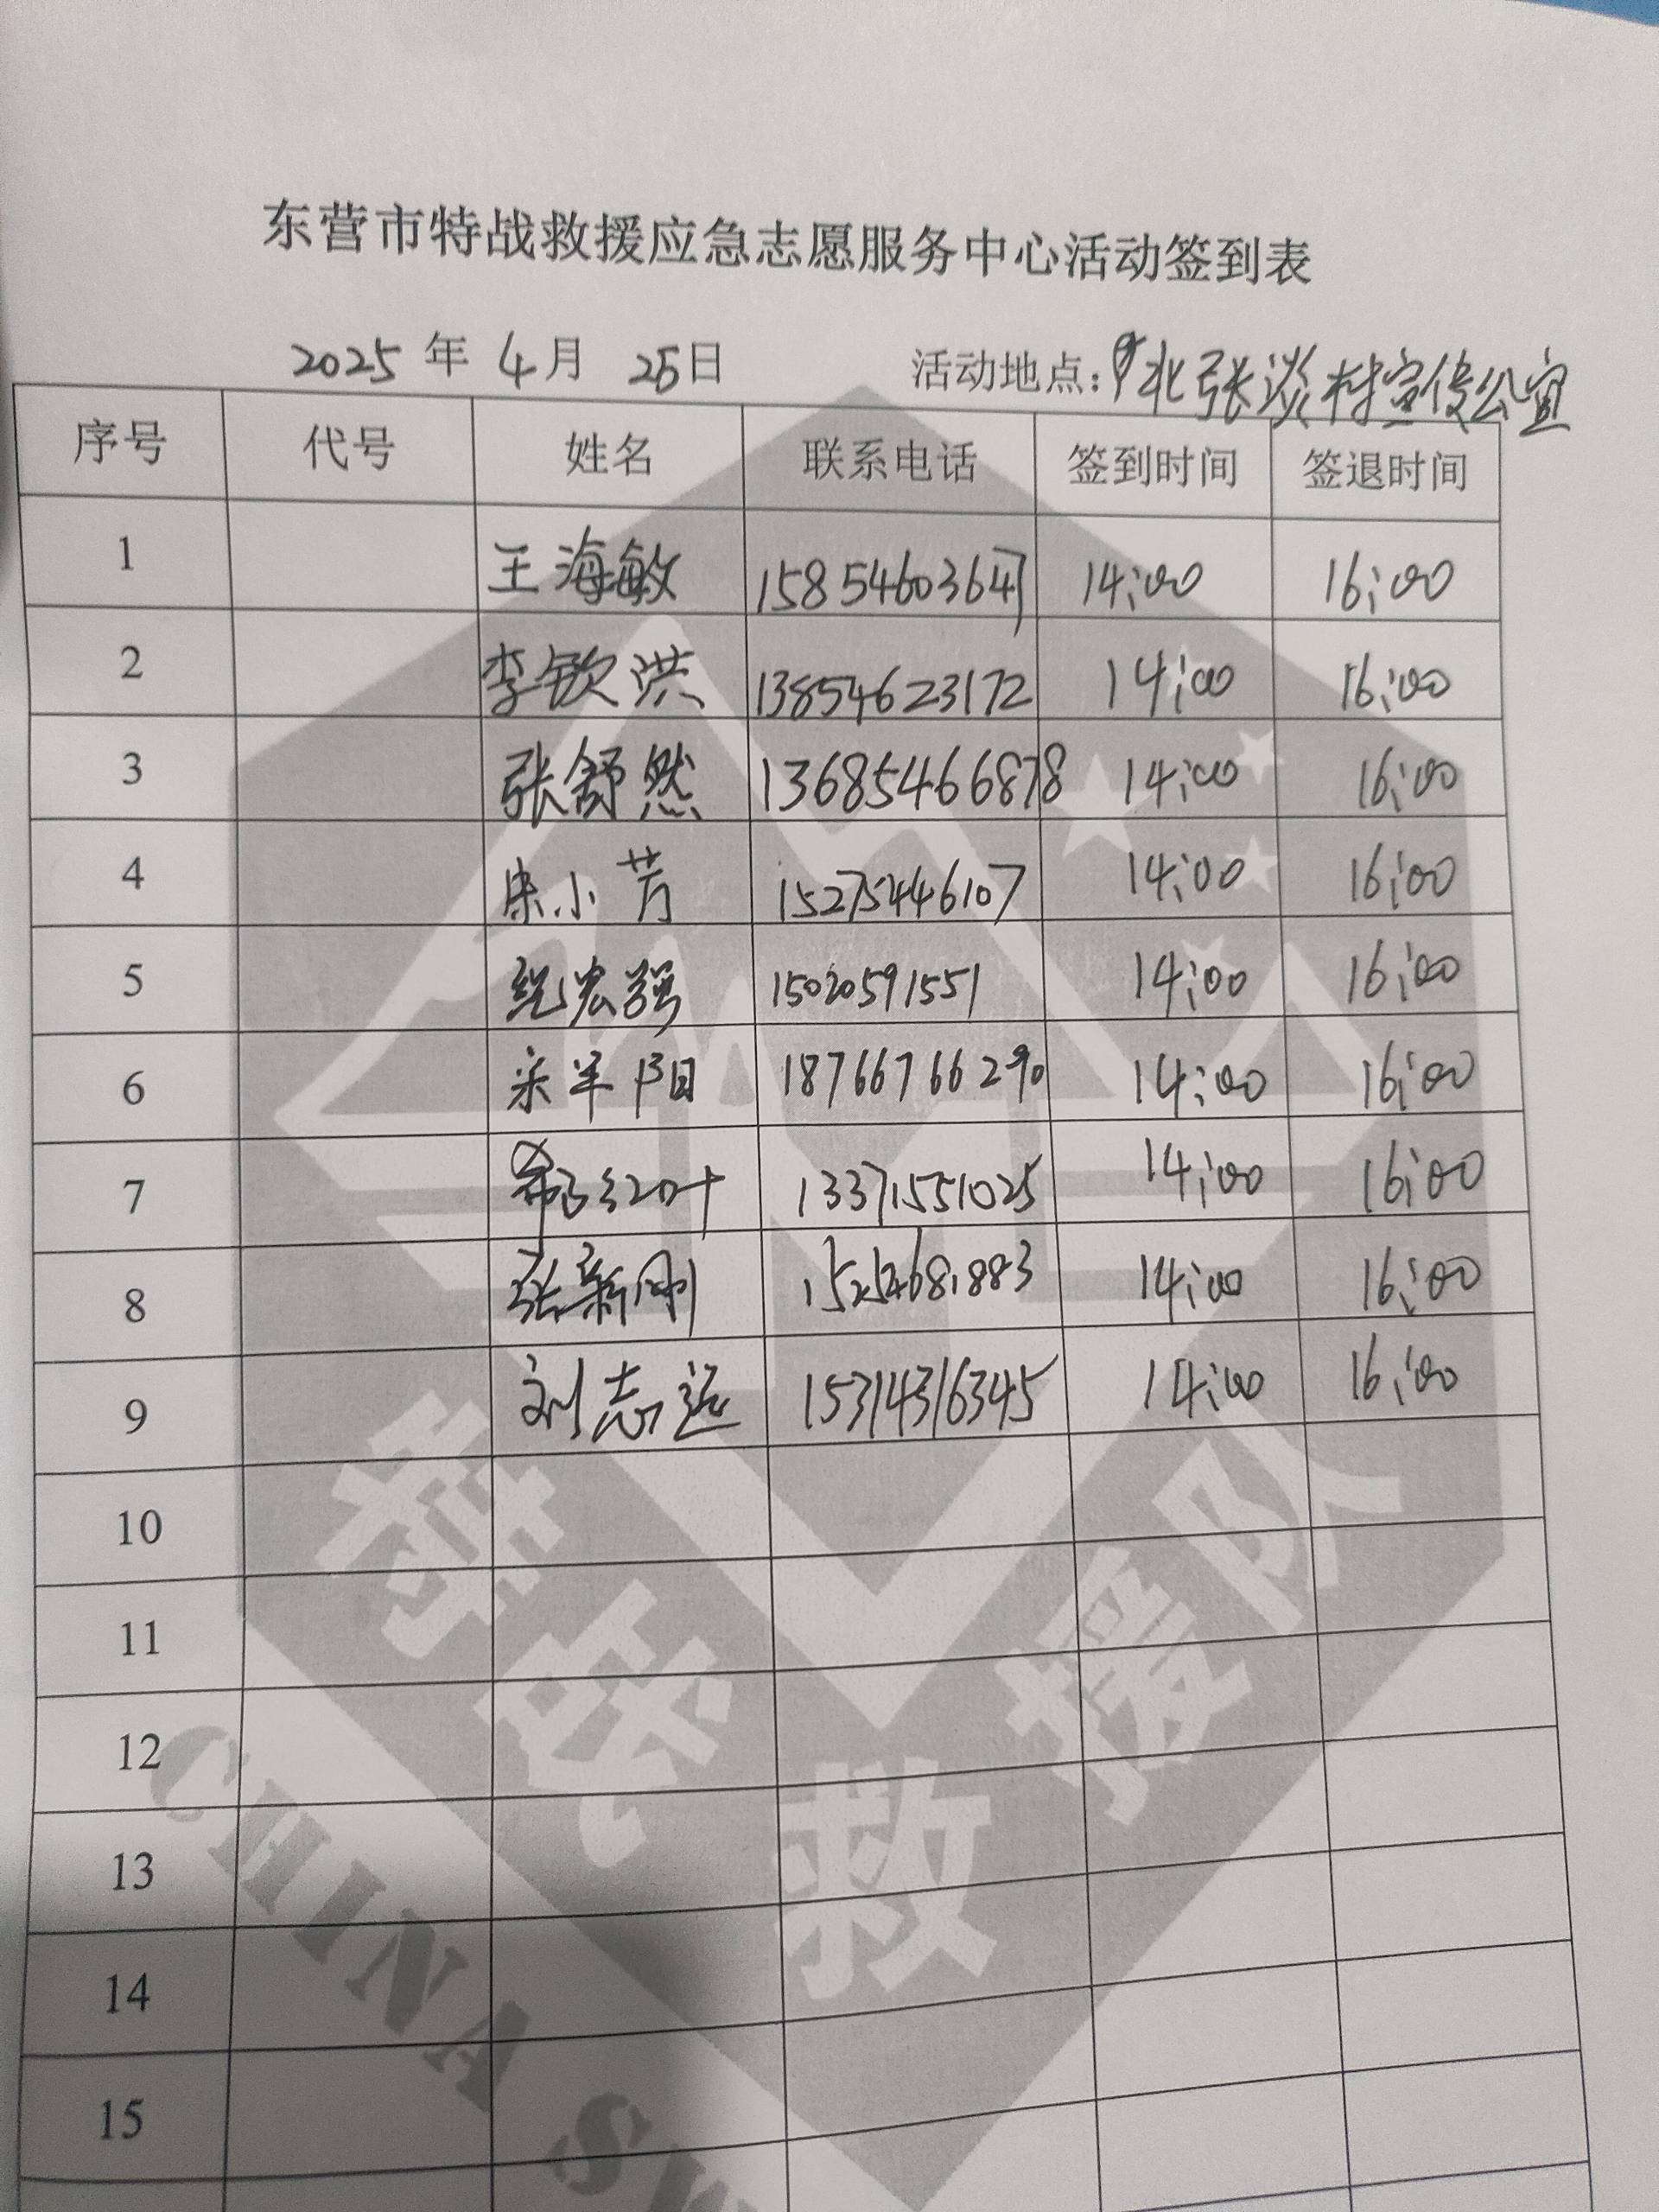 东营市特战救援应急志愿服务中心活动签到表
2025 年 4 月 25日 活动地点：北张淡村宣传公宜
序号 代号 姓名 联系电话 签到时间 签退时间
1 王海敏 15854603647 14:00 16:00
2 李钦洪 13854623172 14:00 16:00
3 张舒然 13685466878 14:00 16:00
4 小芳 15275446107 14:00 16:00
5 纪宏强 15020591551 14:00 16:00
6 羊阳 18766766290 14:00 16:00
7 13371551025 14:00 16:00
8 张新刚 15254681883 14:00 16:00
9 刘志远 15314316345 14:00 16:00
10
11
12
13
14
15
特战救援队
CHINA SW